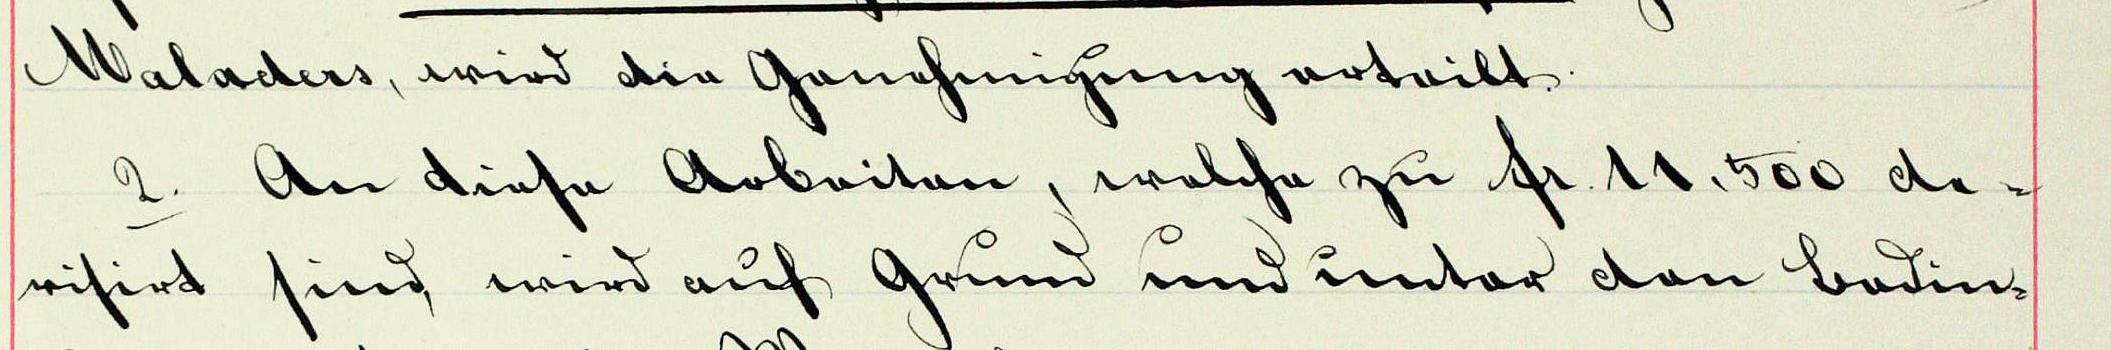 Maladers, wird die Genehmigung erteilt.
2. An diese Arbeiten, welche zu fr. 11.500 de-
visirt sind, wird auf Grund und unter den Bedin-